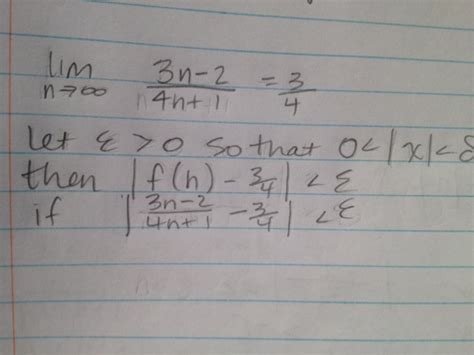 lim n→∞ 3n-2/4n+1 = 3/4
Let ε > 0 so that 0 < |x| < δ
then |f(n) - 3/4| < ε
if |3n-2/4n+1 - 3/4| < ε